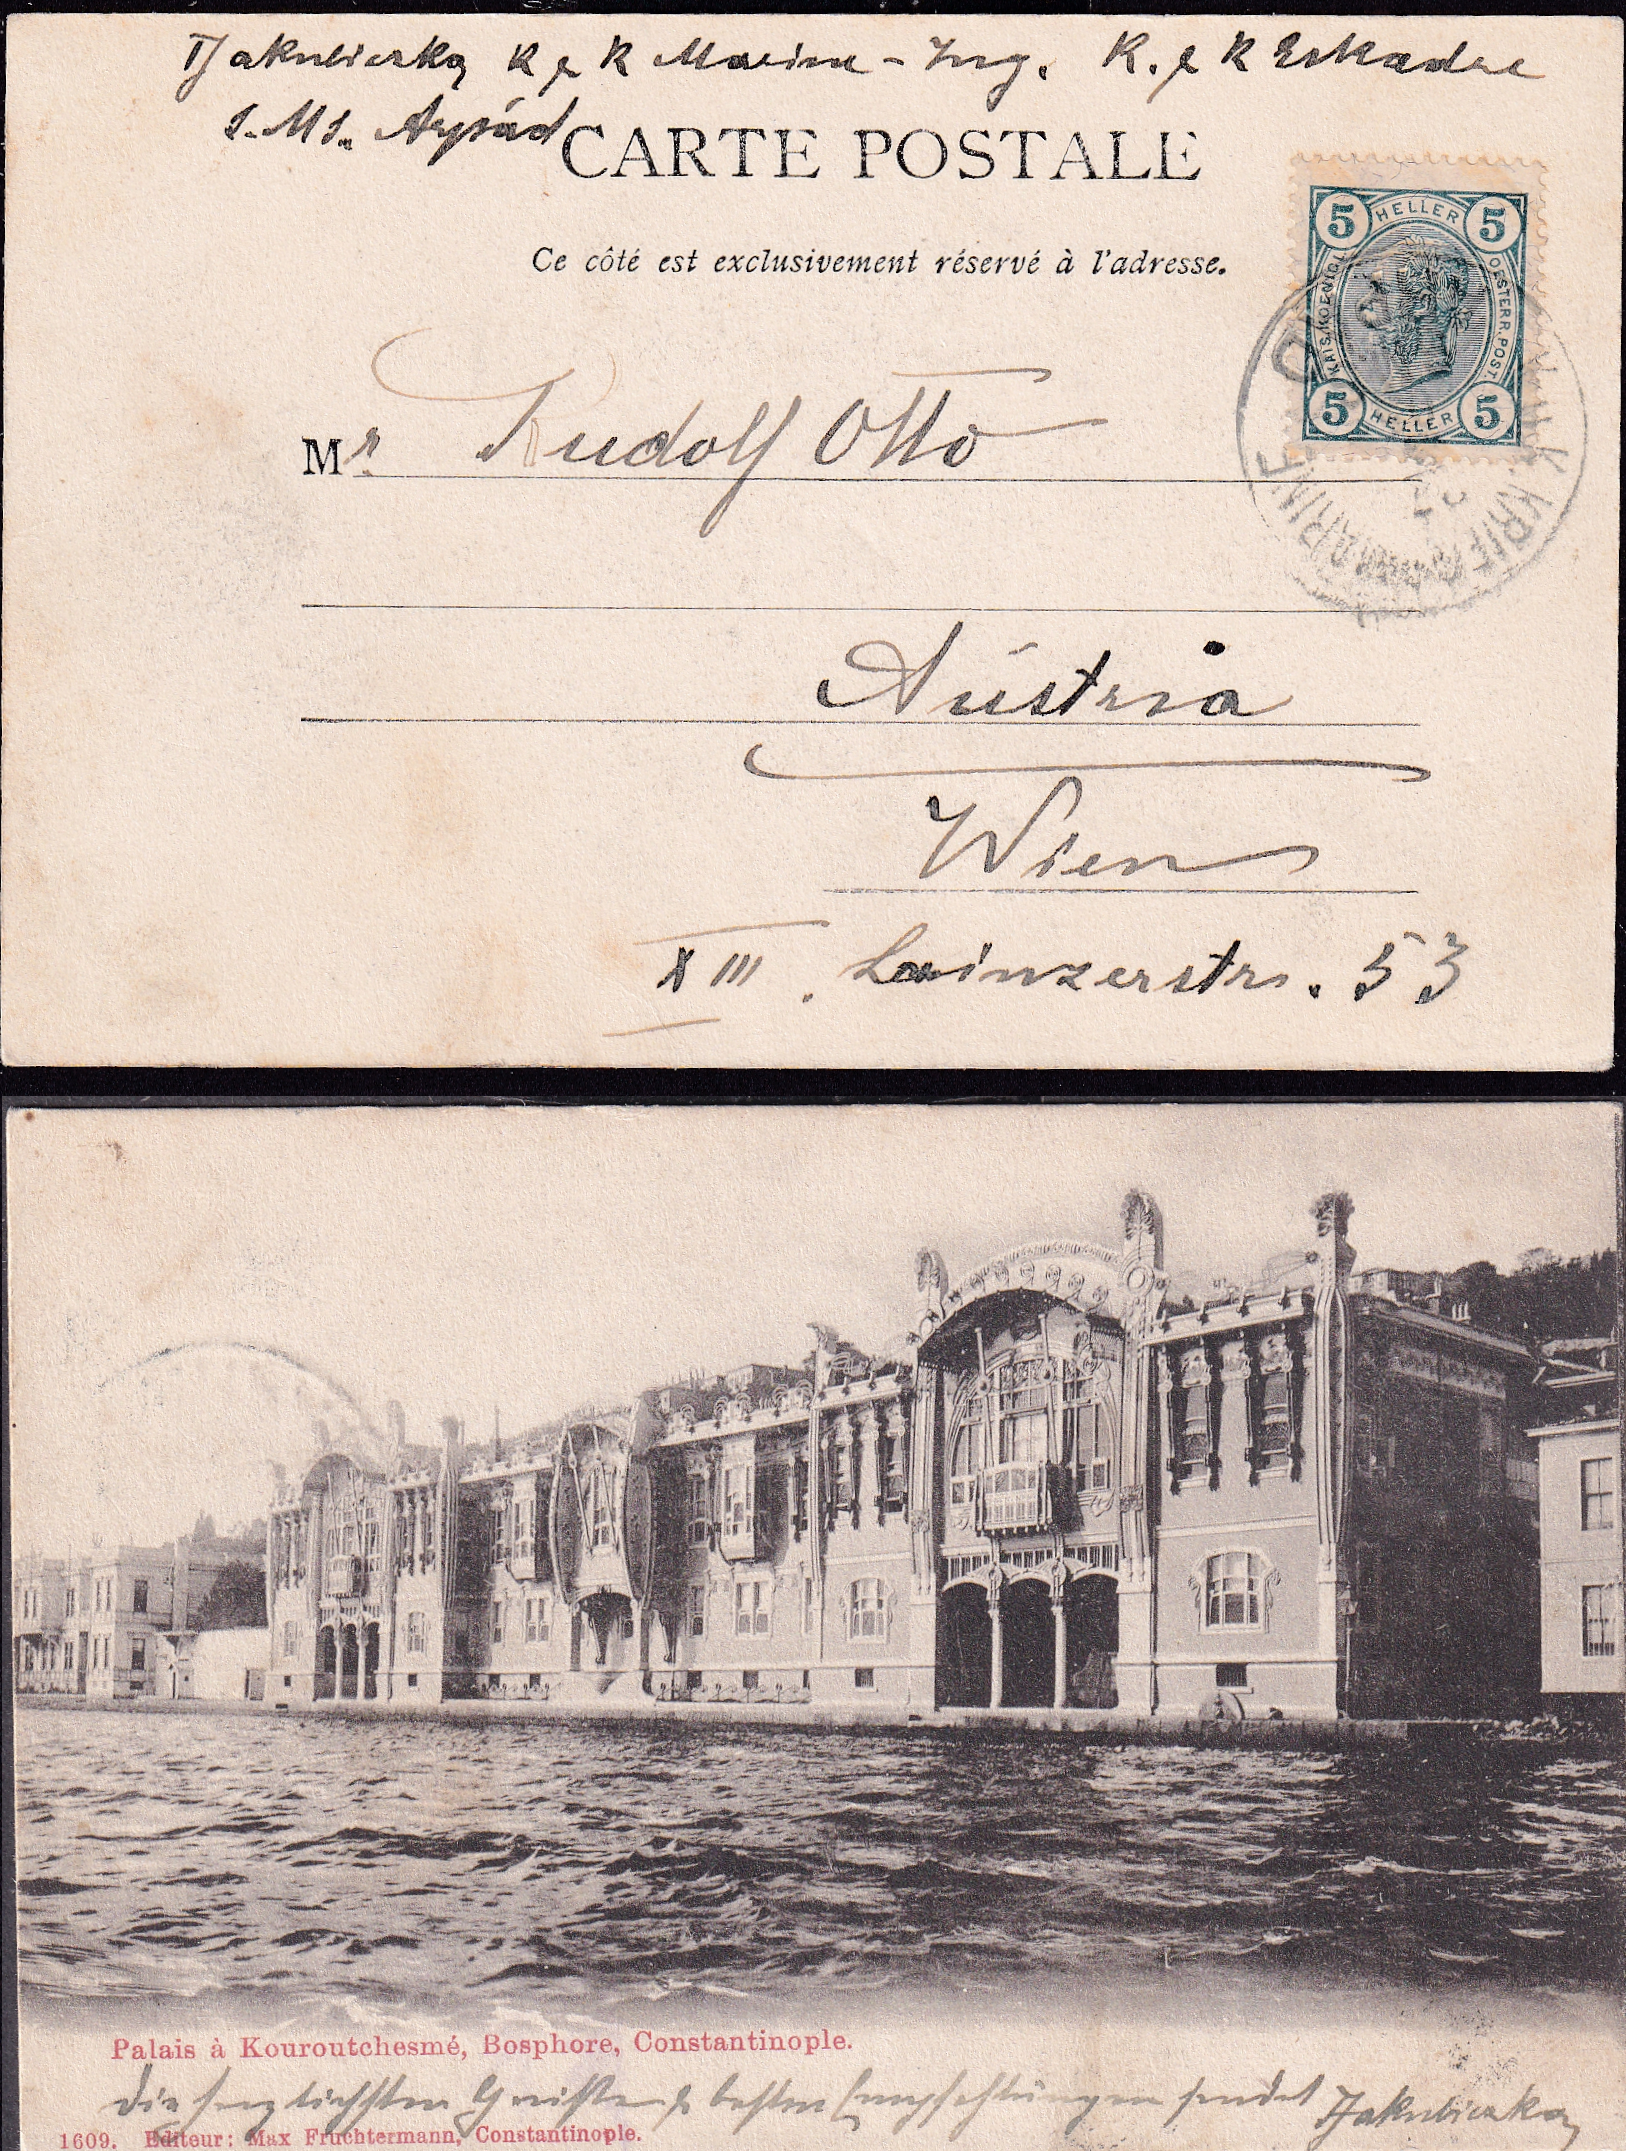 TJakubiczka K & K Marine-Ing. K. & K Eskadre
S.M.S. Árpád
CARTE POSTALE
Ce côté est exclusivement réservé à l'adresse.
5 HELLER 5
KAIS. KOENIGL. OESTERR. POST.
5 HELLER 5
K K KRIE
MARINE
Mr. Rudolf Otto
Austria
Wien
XIII. Lainzerstr. 53
Palais à Kouroutchesmé, Bosphore, Constantinople.
Die herzlichsten Grüße & besten Empfehlungen sendet TJakubiczka
1609. Editeur: Max Fruchtermann, Constantinople.